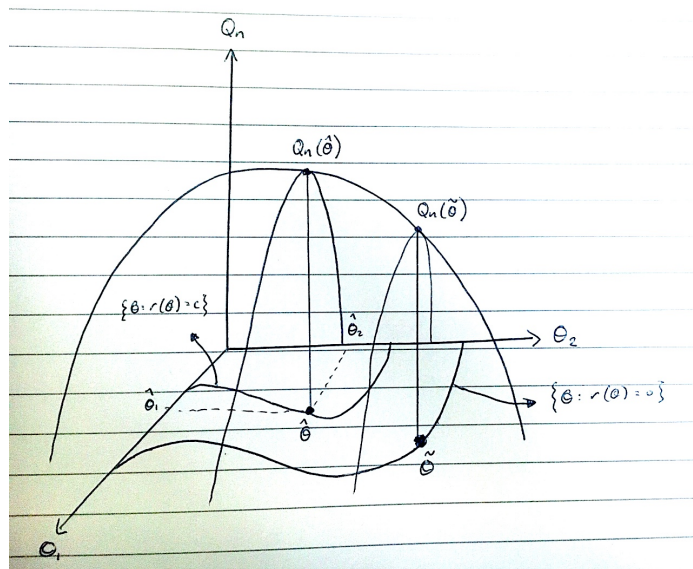 Qn
Qn(θ̂)
Qn(θ̃)
{θ: r(θ) = c}
θ̂₂
θ₂
θ̂₁
{θ: r(θ) = 0}
θ̂
θ̃
θ₁